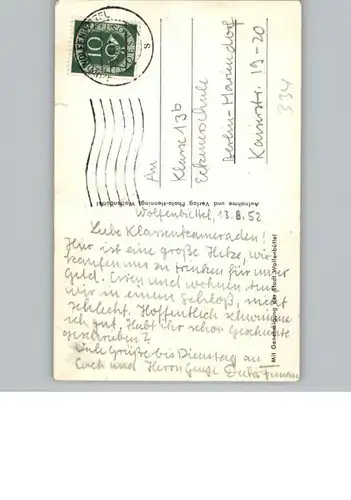 Wolfenbüttel, 13.8.52
Liebe Klassenkameraden!
Hier ist eine große Hitze, wir
kaufen uns zu trinken für unser
Geld. Essen und wohnen tun
wir in einem Schloß, nicht
schlecht. Hoffentlich schwimme
ich gut, Habt ihr schon Geschichte
geschrieben?
Viele Grüße bis Dienstag an
Euch und Herrn
An
Klasse 13b
Eckenerschule
Berlin-Mariendorf
Kaiserstr. 19-20
334
Aufnahme und Verlag Photo-Hennings, Wolfenbüttel
Mit Genehmigung der Stadt Wolfenbüttel
10